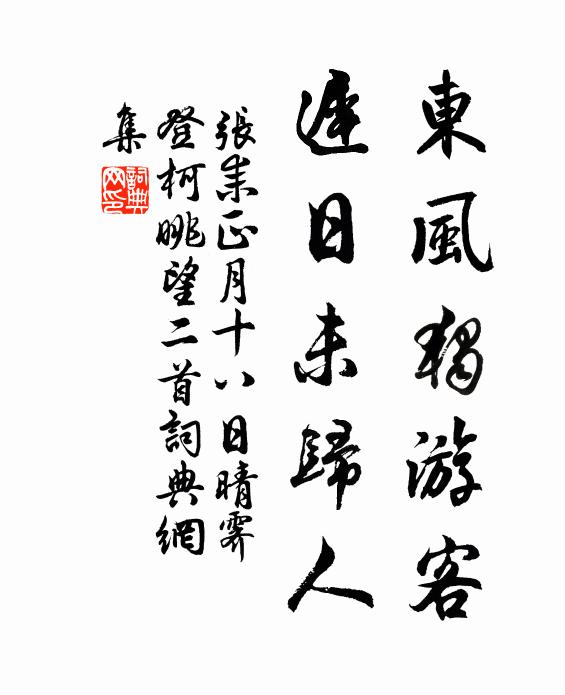 東風獨游客
遲日未歸人
張耒正月十八日晴霽
登柯眺望二首詞典網
集
詞典
网印